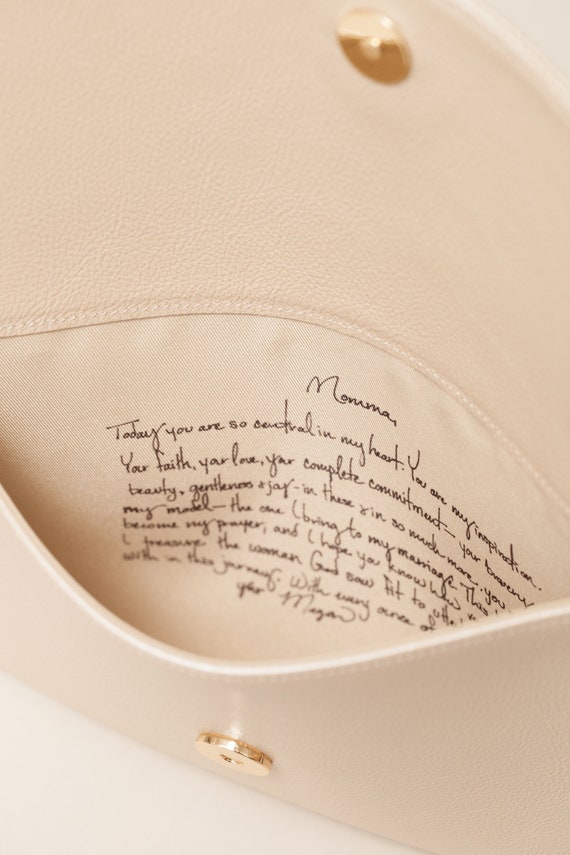 Momma,
Today you are so central in my heart. You are my inspiration.
Your faith, your love, your complete commitment— your bravery,
beauty, gentleness & joy—in these & in so much more, you
my model— the one I bring to my marriage. This
become my prayer, and I hope you know how
I treasure the woman God saw fit to
with in this journey. With every ounce of
your Megan